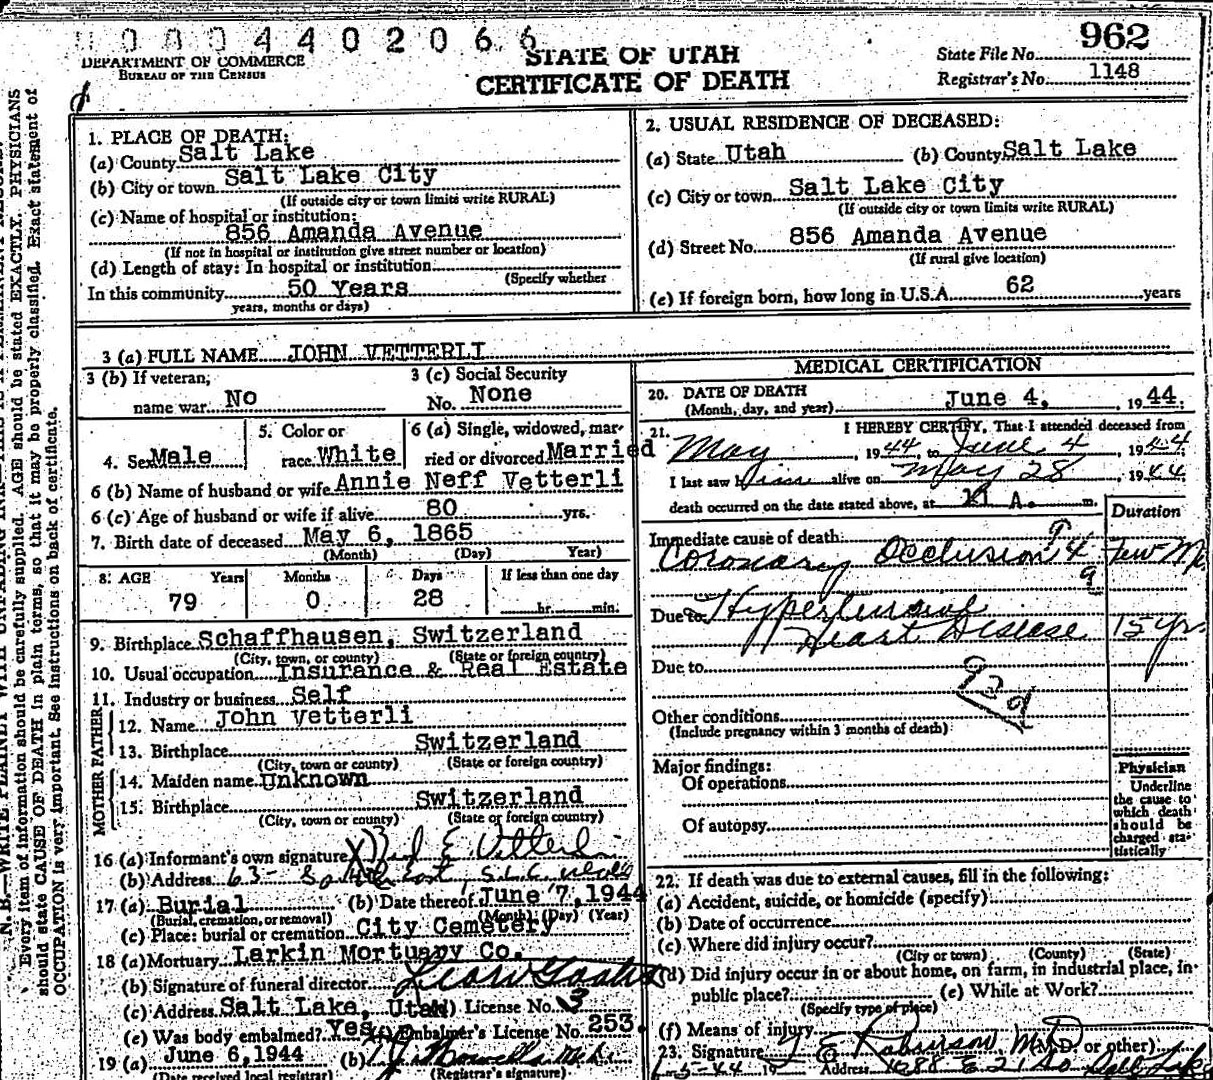 0 8 0 4 4 0 2 0 6 6
DEPARTMENT OF COMMERCE
BUREAU OF THE CENSUS
STATE OF UTAH
CERTIFICATE OF DEATH
State File No. 962
Registrar's No. 1148
1. PLACE OF DEATH:
(a) County Salt Lake
(b) City or town Salt Lake City
(If outside city or town limits write RURAL)
(c) Name of hospital or institution:
856 Amanda Avenue
(If not in hospital or institution give street number or location)
(d) Length of stay: In hospital or institution
(Specify whether
In this community 50 Years
years, months or days)
2. USUAL RESIDENCE OF DECEASED:
(a) State Utah (b) County Salt Lake
(c) City or town Salt Lake City
(If outside city or town limits write RURAL)
(d) Street No. 856 Amanda Avenue
(If rural give location)
(e) If foreign born, how long in U.S.A. 62 years
3 (a) FULL NAME JOHN VETTERLI
3 (b) If veteran,
name war No
3 (c) Social Security
No. None
4. Sex Male
5. Color or
race White
6 (a) Single, widowed, mar-
ried or divorced Married
6 (b) Name of husband or wife Annie Neff Vetterli
6 (c) Age of husband or wife if alive 80 yrs.
7. Birth date of deceased May 6, 1865
(Month) (Day) Year)
8. AGE Years Months Days If less than one day
79 0 28 hr. min.
9. Birthplace Schaffhausen, Switzerland
(City, town, or county) (State or foreign country)
10. Usual occupation Insurance & Real Estate
11. Industry or business Self
FATHER
12. Name John Vetterli
13. Birthplace Switzerland
(City, town or county) (State or foreign country)
MOTHER
14. Maiden name Unknown
15. Birthplace Switzerland
(City, town or county) (State or foreign country)
16 (a) Informant's own signature X E Vetterli
(b) Address 63- East S.L.C.
17 (a) Burial (b) Date thereof June 7, 1944
(Burial, cremation, or removal) (Month) (Day) (Year)
(c) Place: burial or cremation City Cemetery
18 (a) Mortuary Larkin Mortuary Co.
(b) Signature of funeral director
(c) Address Salt Lake, Utah License No. 3
(e) Was body embalmed? Yes Embalmer's License No. 253
19 (a) June 6, 1944 (b)
(Date received local registrar) (Registrar's signature)
MEDICAL CERTIFICATION
20. DATE OF DEATH
(Month, day, and year) June 4, 1944.
21. I HEREBY CERTIFY, That I attended deceased from
May, 1944, to June 4, 1944
I last saw him alive on May 28 1944
death occurred on the date stated above, at XI A. m.
Duration
Immediate cause of death:
Coronary Occlusion 94 a Few
Due to Hypertensive
Heart Disease 15 yrs
Due to
93d
Other conditions
(Include pregnancy within 3 months of death)
Major findings:
Of operations
Of autopsy
Physician
Underline
the cause to
which death
should be
charged sta-
tistically
22. If death was due to external causes, fill in the following:
(a) Accident, suicide, or homicide (specify)
(b) Date of occurrence
(c) Where did injury occur?
(City or town) (County) (State)
(d) Did injury occur in or about home, on farm, in industrial place, in
public place? (e) While at Work?
(Specify type of place)
(f) Means of injury
23. Signature E Robinson M.D. (M.D. or other)
Address Salt Lake
N. B.—WRITE PLAINLY WITH UNFADING INK—THIS IS A PERMANENT RECORD.
Every item of information should be carefully supplied. AGE should be stated EXACTLY. PHYSICIANS
should state CAUSE OF DEATH in plain terms, so that it may be properly classified. Exact statement of
OCCUPATION is very important. See instructions on back of certificate.